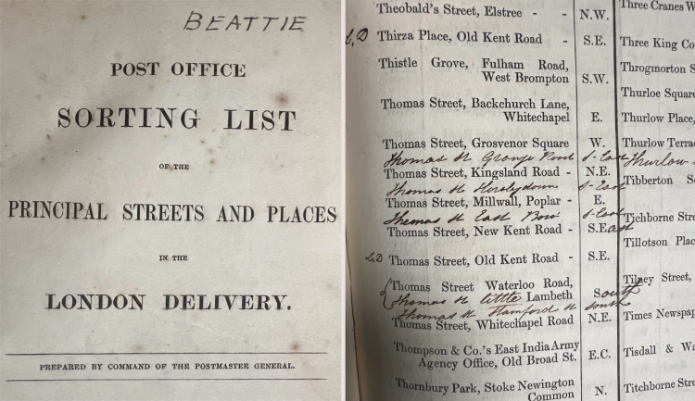 BEATTIE
POST OFFICE
SORTING LIST
OF THE
PRINCIPAL STREETS AND PLACES
IN THE
LONDON DELIVERY.
PREPARED BY COMMAND OF THE POSTMASTER GENERAL.
Theobald's Street, Elstree - - N.W.
Thirza Place, Old Kent Road - S.E.
Thistle Grove, Fulham Road,
West Brompton S.W.
Thomas Street, Backchurch Lane,
Whitechapel E.
Thomas Street, Grosvenor Square W.
Thomas St Grange Road S-East
Thomas Street, Kingsland Road - N.E.
Thomas St Horselydown S-East
Thomas Street, Millwall, Poplar - E.
Thomas St East S-East
Thomas Street, New Kent Road - S.East
S,D Thomas Street, Old Kent Road - S.E.
Thomas Street Waterloo Road,
Lambeth South
Thomas St little
Thomas St Stamford St South
Thomas Street, Whitechapel Road N.E.
Thompson & Co.'s East India Army
Agency Office, Old Broad St. E.C.
Thornbury Park, Stoke Newington
Common N.
Three Cranes W
Three King Co
Throgmorton S
Thurloe Square
Thurlow Place,
Thurlow Terra
Thurlow
Tibberton Sq
Tichborne Stre
Tillotson Plac
Tilney Street,
Times Newspap
Tisdall & Wa
Titchborne Stre